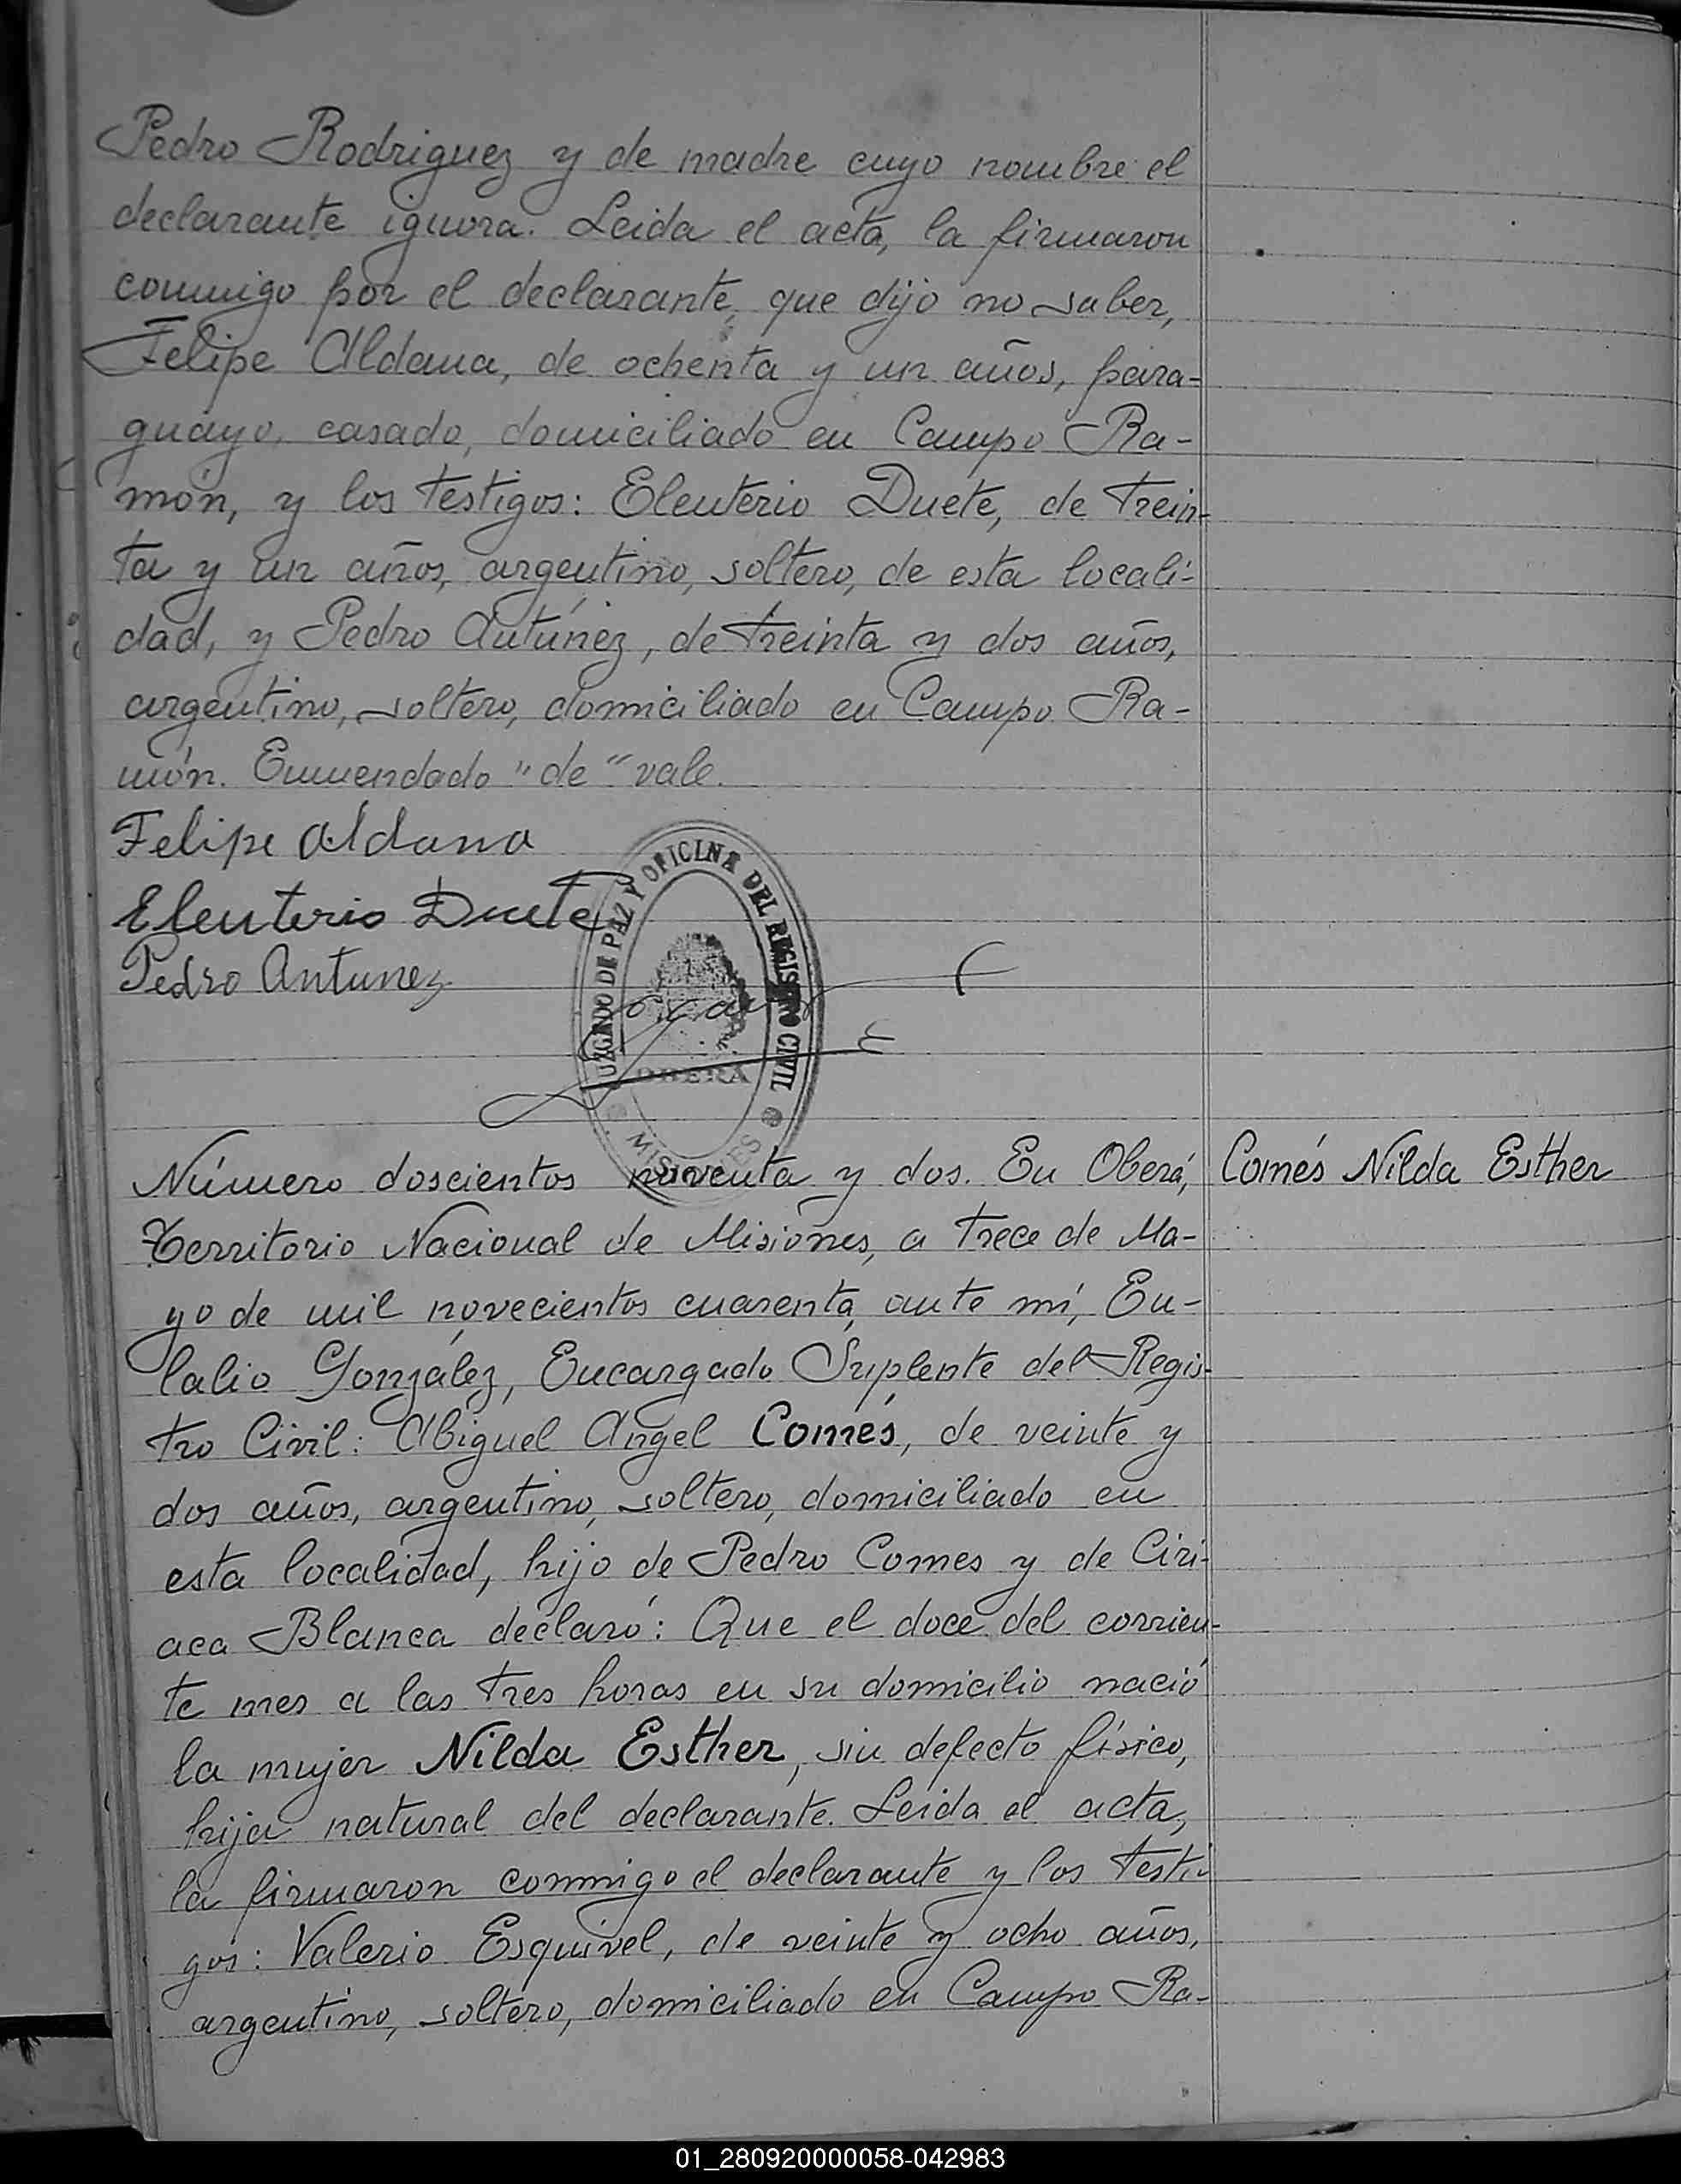 Pedro Rodriguez y de madre cuyo nombre el
declarante ignora. Leida el acta, la firmaron
conmigo por el declarante, que dijo no saber,
Felipe Aldana, de ochenta y un años, para-
guayo, casado, domiciliado en Campo Ra-
món, y los testigos: Eleuterio Duete, de trein-
ta y un años, argentino, soltero, de esta locali-
dad, y Pedro Antúnez, de treinta y dos años,
argentino, soltero, domiciliado en Campo Ra-
món. Enmendado "de" vale.
Felipe Aldana
Eleuterio Duete
Pedro Antunez
JUZGADO DE PAZ Y OFICINA DEL REGISTRO CIVIL
OBERA
MISIONES
Número doscientos noventa y dos. En Oberá, Comés Nilda Esther
Territorio Nacional de Misiones, a trece de Ma-
yo de mil novecientos cuarenta, ante mí, Eu-
lalio González, Encargado Suplente del Regis-
tro Civil: Miguel Angel Comés, de veinte y
dos años, argentino, soltero, domiciliado en
esta localidad, hijo de Pedro Comes y de Ciri-
aca Blanca declaró: Que el doce del corrien-
te mes a las tres horas en su domicilio nació
la mujer Nilda Esther, sin defecto físico,
hija natural del declarante. Leida el acta,
la firmaron conmigo el declarante y los testi-
gos: Valerio Esquivel, de veinte y ocho años,
argentino, soltero, domiciliado en Campo Ra-
01_280920000058-042983